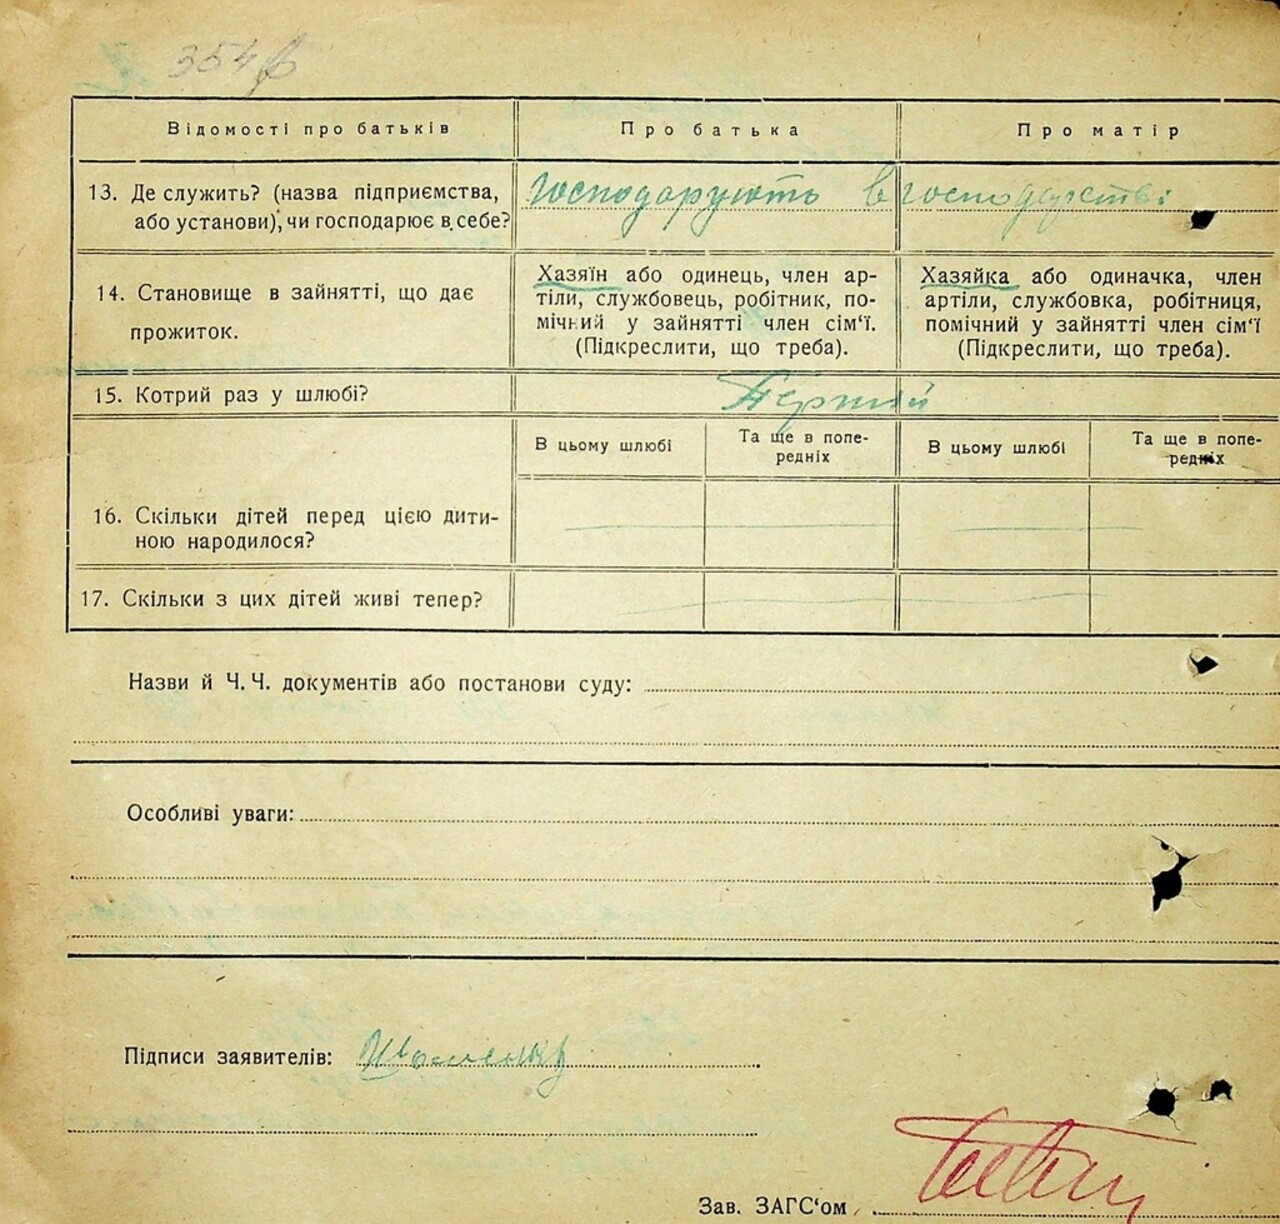 354
Відомості про батьків
Про батька
Про матір
13. Де служить? (назва підприємства,
або установи), чи господарює в себе?
господарують в господарстві
14. Становище в зайнятті, що дає
прожиток.
Хазяїн або одинець, член ар-
тіли, службовець, робітник, по-
мічний у зайнятті член сім‘ї.
(Підкреслити, що треба).
Хазяйка або одиначка, член
артіли, службовка, робітниця,
помічний у зайнятті член сім‘ї
(Підкреслити, що треба).
15. Котрий раз у шлюбі?
Перший
В цьому шлюбі
Та ще в попе-
редніх
В цьому шлюбі
Та ще в попе-
редніх
16. Скільки дітей перед цією дити-
ною народилося?
17. Скільки з цих дітей живі тепер?
Назви й Ч. Ч. документів або постанови суду:
Особливі уваги:
Підписи заявителів:
Зав. ЗАГС‘ом